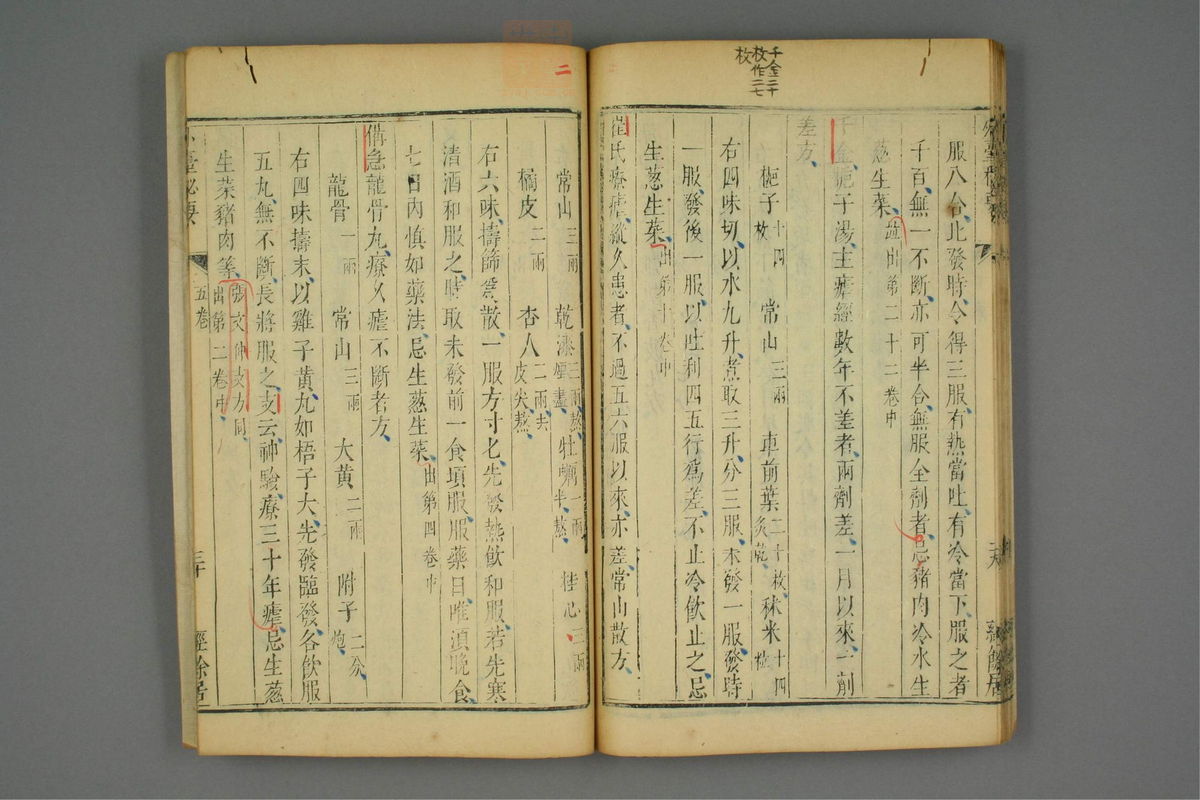 千金二十
枚作二七
枚
服八合比發時令得三服有熱當吐有冷當下服之者
千百無一不斷亦可半合無服全劑者忌豬肉冷水生
葱生菜 並出第二十二卷中
千金梔子湯主瘧經數年不差者兩劑差一月以來一劑
差方
梔子 十四枚 常山 三兩 車前葉 二十枚炙乾 秫米 十四粒
右四味切以水九升煮取三升分三服未發一服發時
一服發後一服以吐利四五行爲差不止冷飲止之忌
生葱生菜 出第十卷中
崔氏療瘧縱久患者不過五六服以來亦差常山散方
二
常山 三兩 乾漆 三兩熬烟盡 牡蠣 一兩半熬 桂心 三兩
橘皮 二兩 杏人 二兩去皮尖熬
右六味擣篩爲散一服方寸匕先發熱飲和服若先寒
清酒和服之時取未發前一食頃服服藥日唯須晚食
七日内慎如藥法忌生葱生菜 出第四卷中
備急龍骨丸療久瘧不斷者方
龍骨 一兩 常山 三兩 大黄 二兩 附子 二分炮
右四味擣末以雞子黄丸如梧子大先發臨發各飲服
五丸無不斷長將服之支云神驗療三十年瘧忌生葱
生菜豬肉等 張文仲支方同出第二卷中
臺祕要
五卷
三十
經餘居